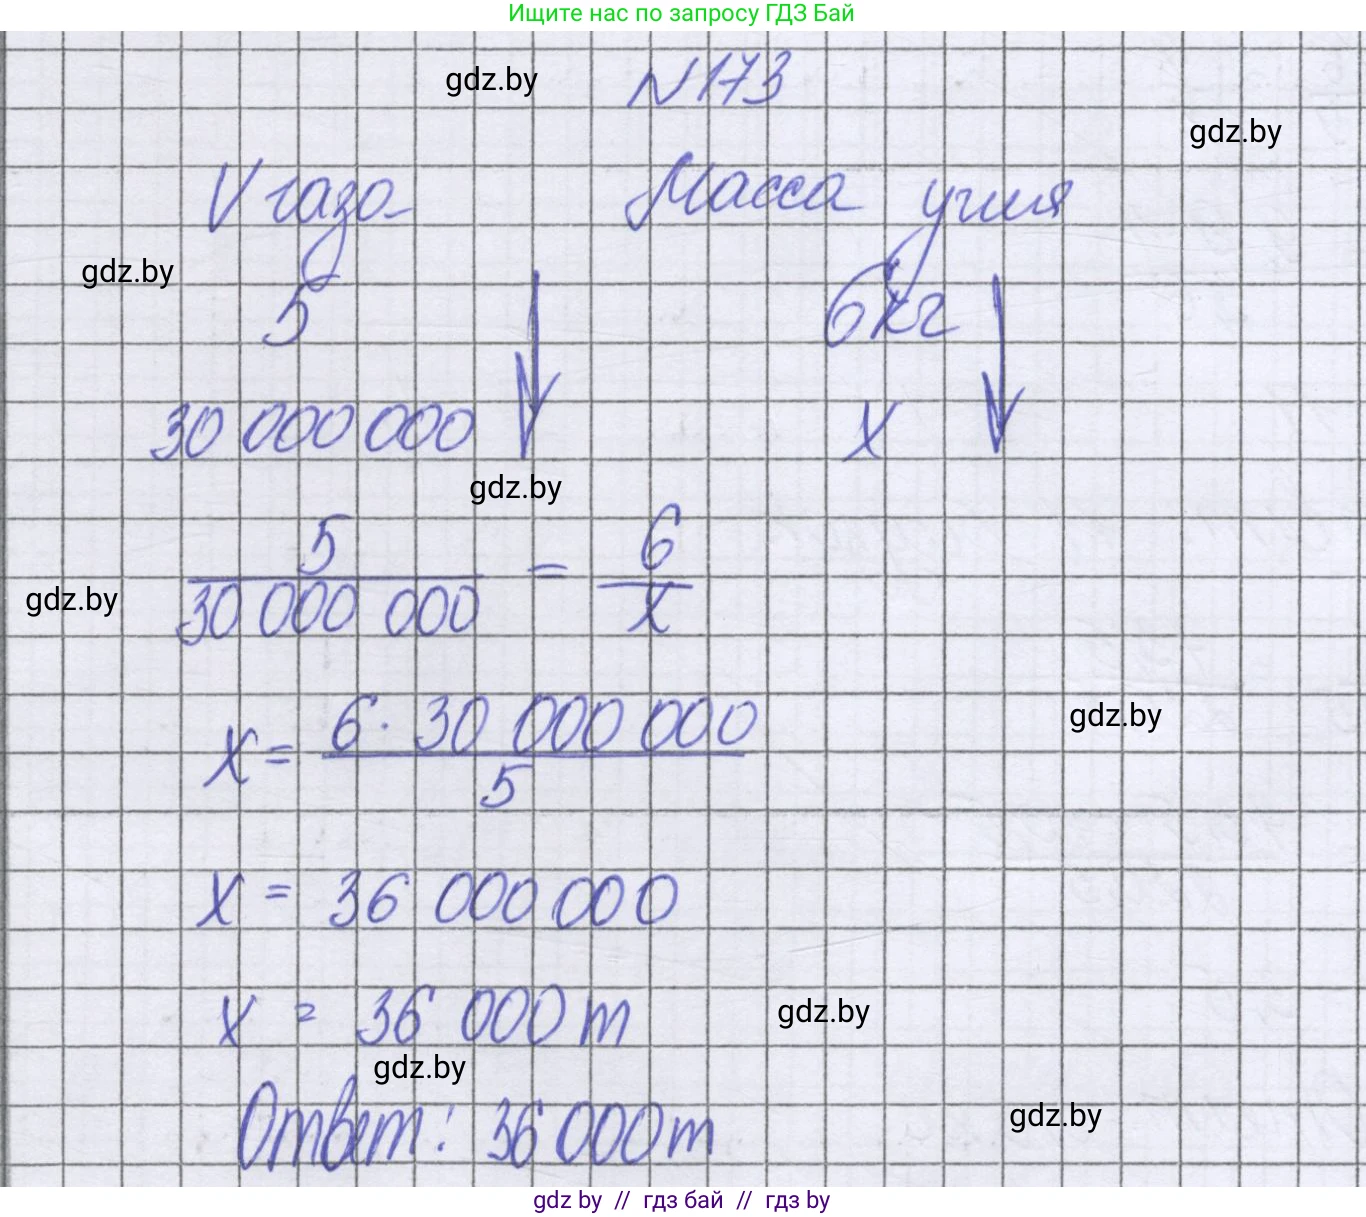 Ищите нас по запросу ГДЗ Бай
gdz.by
N173
gdz.by
V газа
Масса угля
gdz.by
5
6 кг
30 000 000
x
gdz.by
5 / 30 000 000 = 6 / x
gdz.by
x = 6 · 30 000 000 / 5
gdz.by
x = 36 000 000
x = 36 000 т
gdz.by
gdz.by
Ответ: 36 000 т
gdz.by
gdz by // гдз бай // гдз by